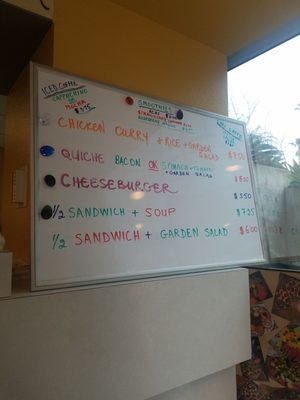 ICED COFFEE
CAPPUCCINO
OR
MOCHA
$3.95
SMOOTHIES
CHICKEN CURRY + RICE + GARDEN
SALAD $9.00
QUICHE BACON OR SPINACH + TOMATO
+ GARDEN SALAD $8.00
CHEESEBURGER $5.50
1/2 SANDWICH + SOUP $7.25
1/2 SANDWICH + GARDEN SALAD $6.00